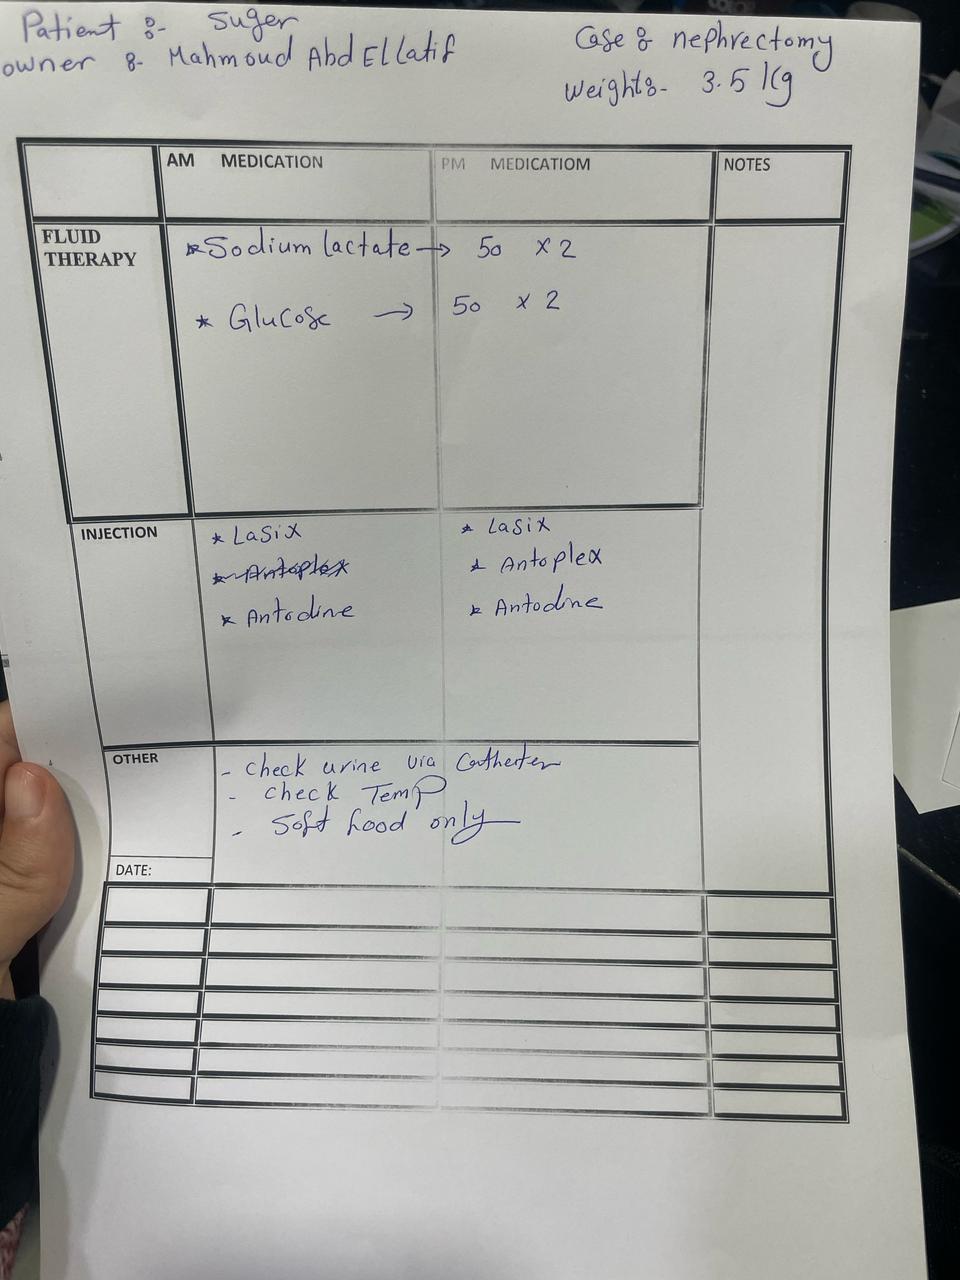 Patient :- Suger
owner :- Mahmoud Abd El Latif
Case : nephrectomy
Weight :- 3.5 kg
AM MEDICATION
PM MEDICATIOM
NOTES
FLUID THERAPY
* Sodium lactate → 50 x 2
* Glucose → 50 x 2
INJECTION
* Lasix
* Antoplex
* Antodine
* Lasix
* Antoplex
* Antodine
OTHER
- check urine via Catheter
- check Temp
- Soft food only
DATE: